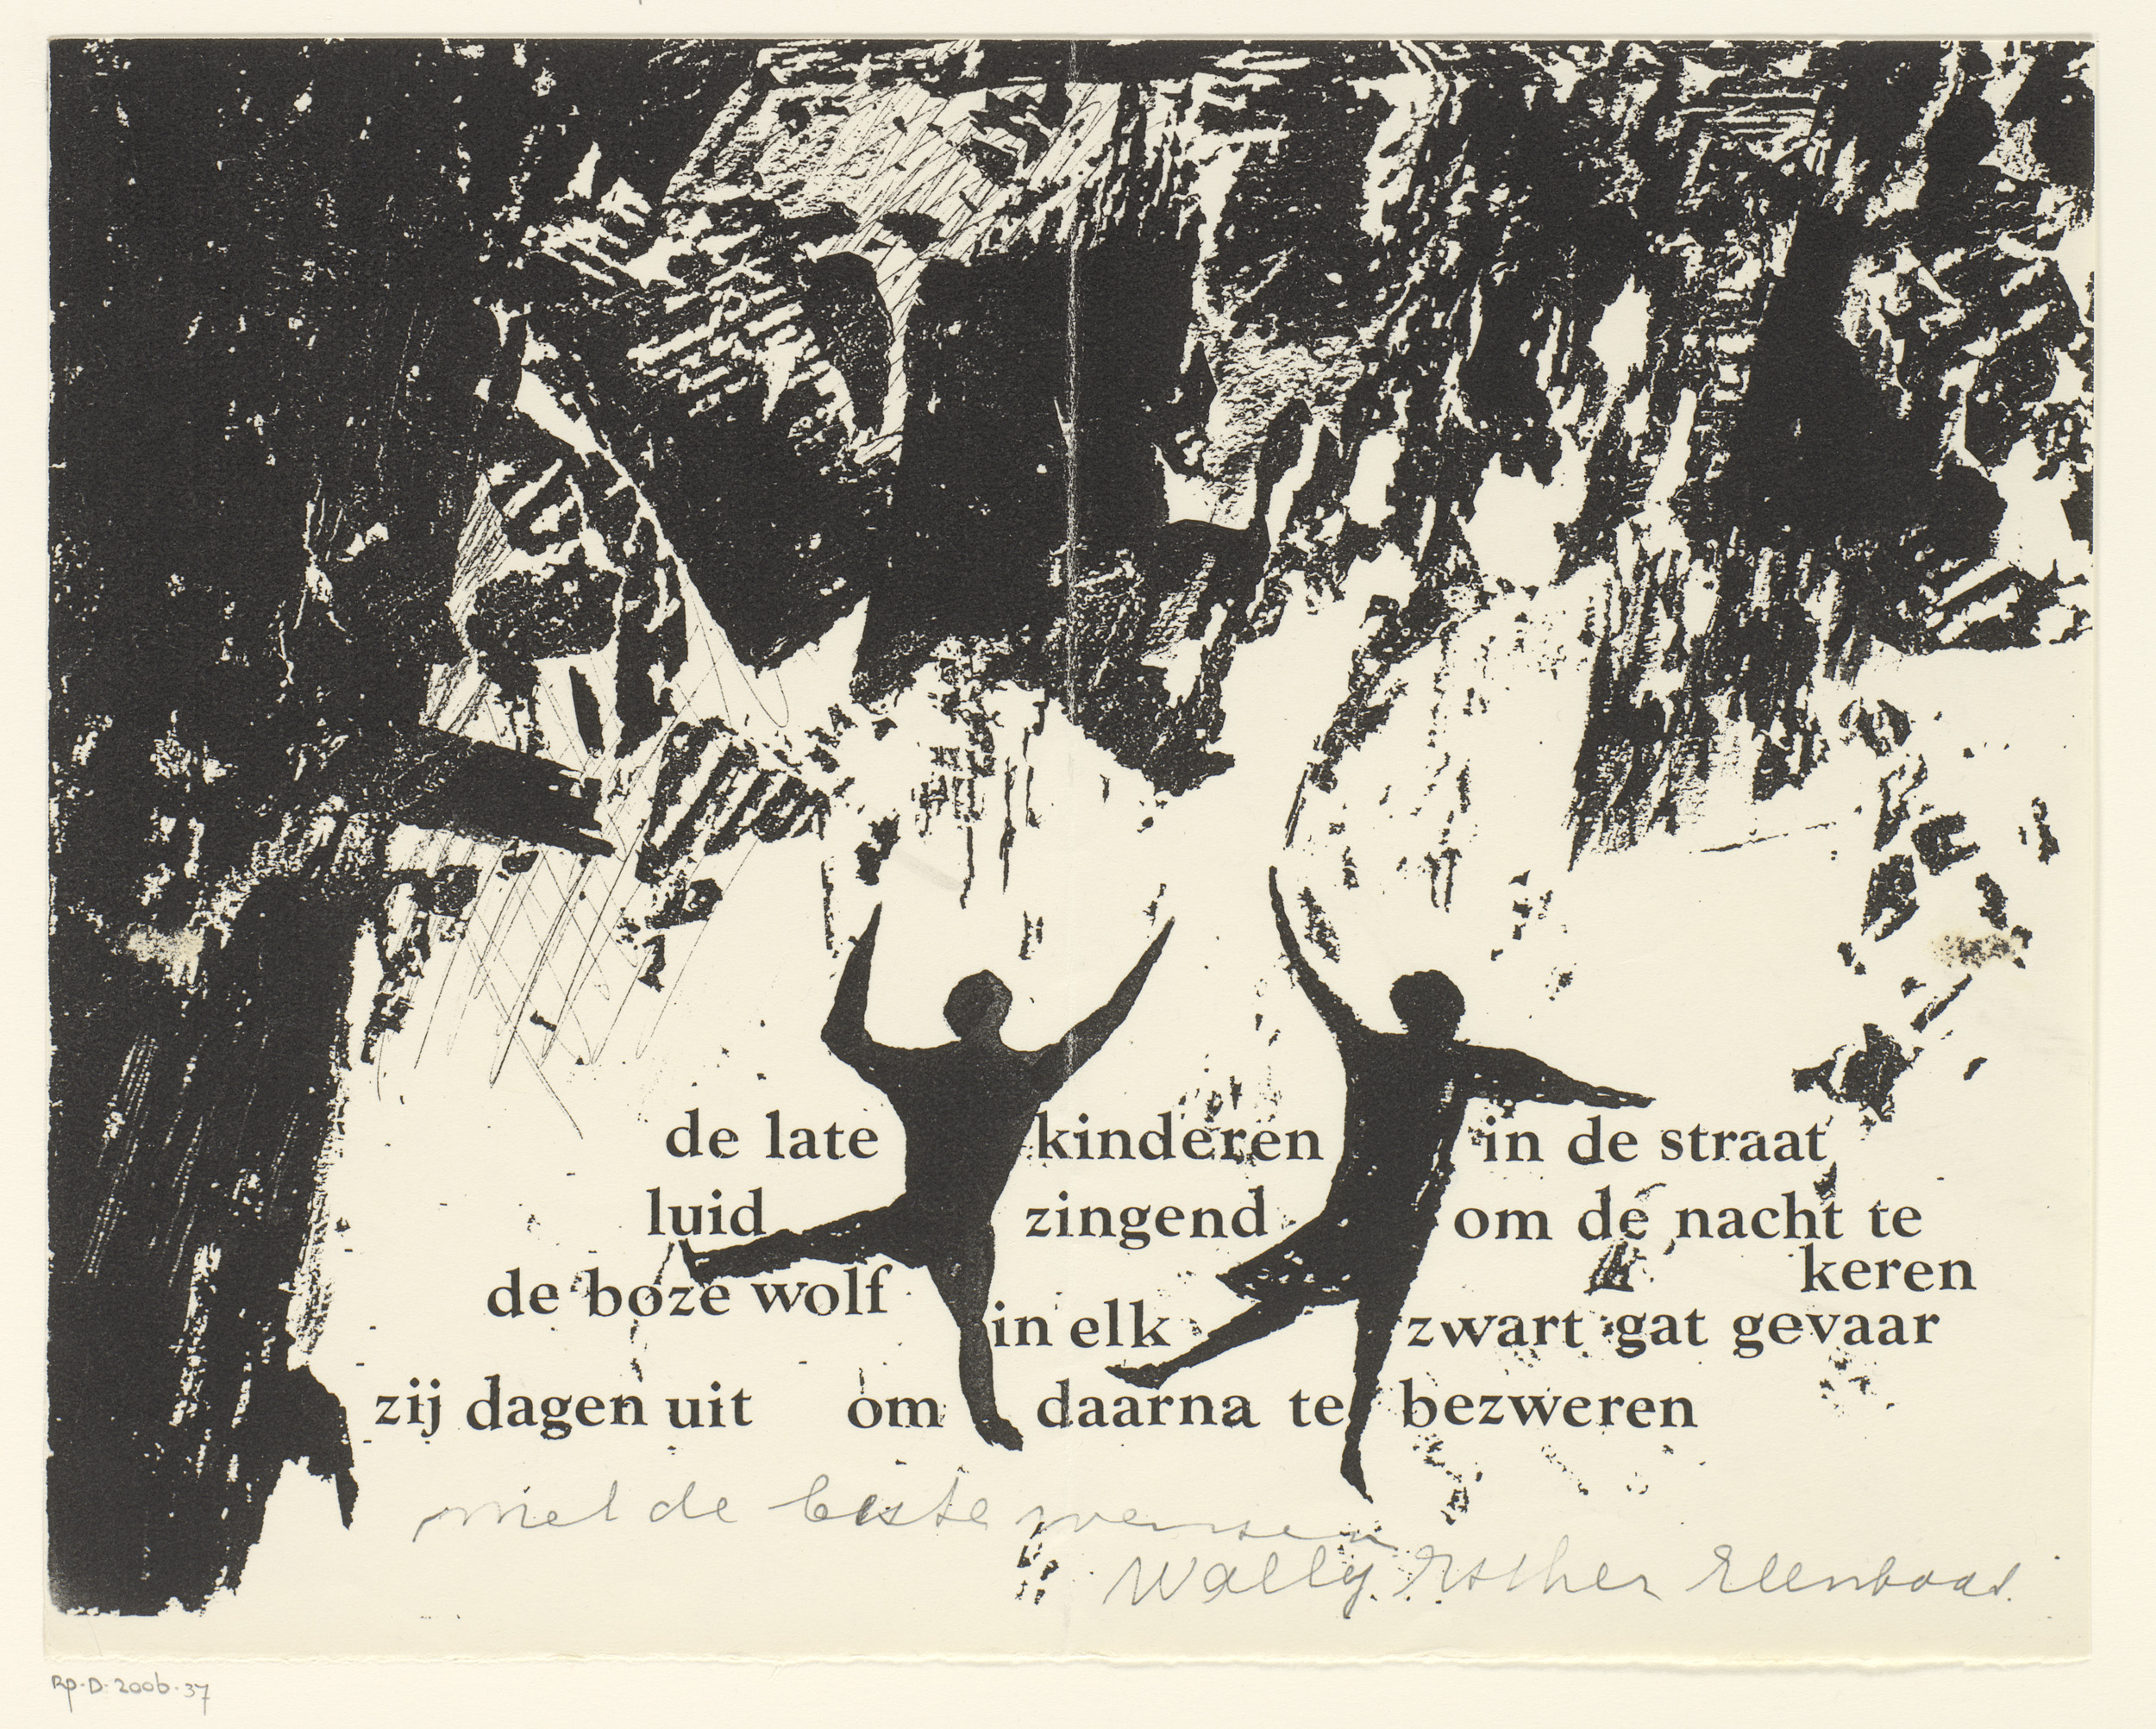 de late kinderen in de straat
luid zingend om de nacht te
keren
de boze wolf in elk zwart gat gevaar
zij dagen uit om daarna te bezweren
met de beste wensen
Wally Esther Elenbaas.
RP-D-2006-37